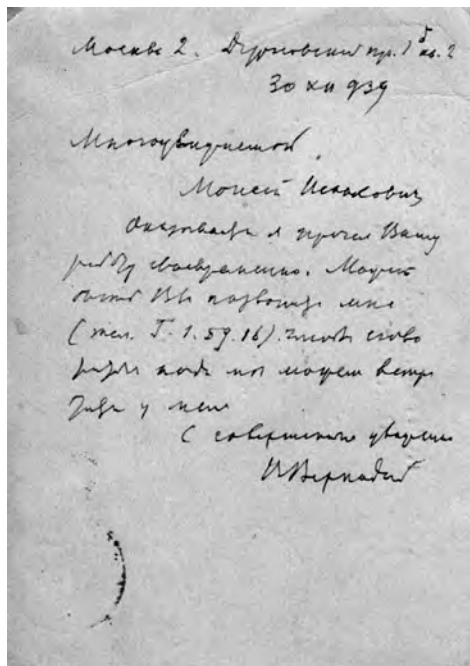 Москва 2. Дурновский пр. 1б кв. 2
30 XII 939
Многоуважаемый
Моисей Исаакович
Оказывается я прочел Вашу
работу своевременно. Может
быть Вы позвоните мне
(тел. Г. 1. 59. 16).
мы можем встре
у меня
С совершенным уважением
ВВернадский